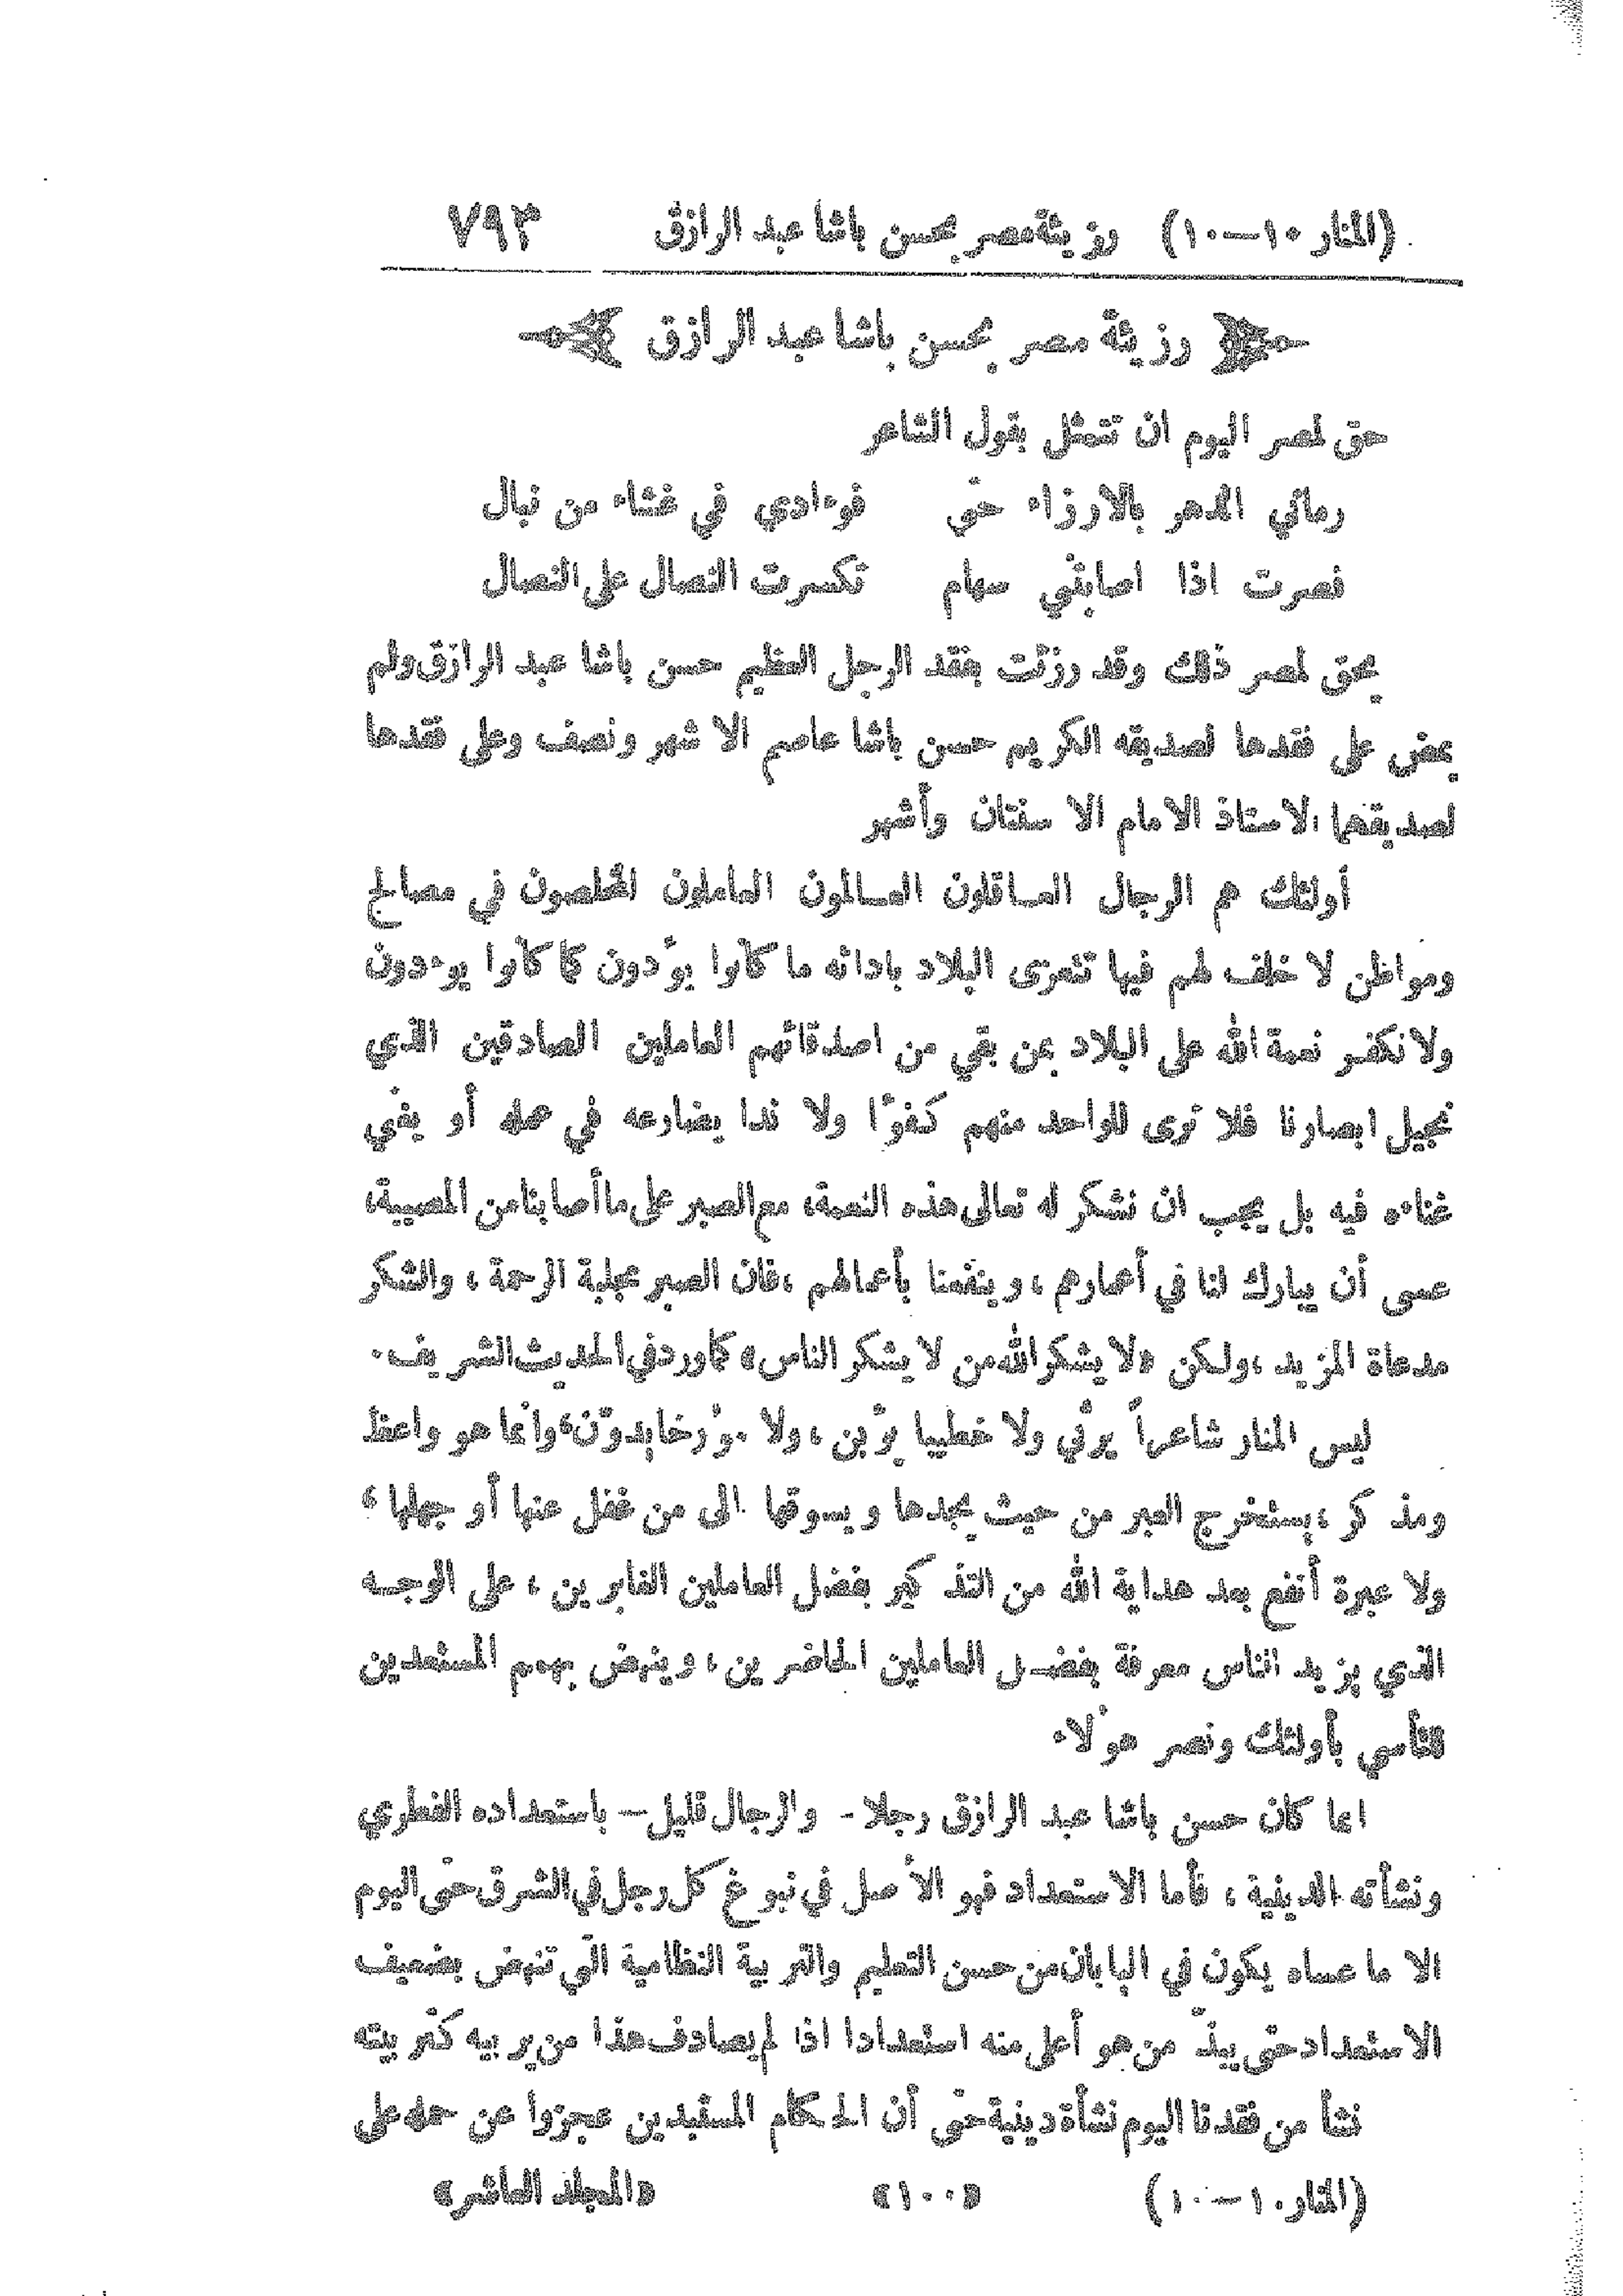 (المنار ١٠–١٠) رزيئة مصر بحسن باشا عبد الرازق ٧٩٣
رزيئة مصر بحسن باشا عبد الرازق
حق لمصر اليوم ان تتمثل بقول الشاعر
رماني الدهر بالارزاء حتى فوءادي في غشاء من نبال
فصرت اذا اصابتني سهام تكسرت النصال على النصال
يحق لمصر ذلك وقد رزئت بفقد الرجل العظيم حسن باشا عبد الرازق ولم
يمض على فقدها لصديقه الكريم حسن باشا عاصم الا شهر ونصف وعلى فقدها
لصديقهما الاستاذ الامام الا سنتان وأشهر
أولئك هم الرجال العاقلون العالمون العاملون المخلصون في مصالح
ومواطن لا خلف لهم فيها تتعزى البلاد بادائه ما كانوا يؤدون كما كانوا يوءدون
ولا نكفر نعمة الله على البلاد بمن بقي من اصدقائهم العاملين الصادقين الذي
نجيل ابصارنا فلا نرى للواحد منهم كفوًا ولا ندا يضارعه في عمله أو يغني
غناءه فيه بل يجب ان نشكر له تعالى هذه النعمة، مع الصبر على ما أصابنا من المصيبة،
عسى أن يبارك لنا في أعمارهم ، وينفعنا بأعمالهم ، فان الصبر مجلبة الرحمة ، والشكر
مدعاة المزيد ، ولكن «لا يشكر الله من لا يشكر الناس» كما ورد في الحديث الشريف .
ليس المنار شاعراً يرثي ولا خطيبا يؤبن ، ولا مؤرخا يدوّن، وانما هو واعظ
ومذكر ، يستخرج العبر من حيث يجدها ويسوقها الى من غفل عنها أو جهلها ،
ولا عبرة أنفع بعد هداية الله من التذكير بفضل العاملين الغابرين ، على الوجه
الذي يزيد الناس معرفة بفضل العاملين الحاضرين ، وينهض بهمم المستعدين
للتأسي بأولئك ونصر هؤلاء
انما كان حسن باشا عبد الرازق رجلا - والرجال قليل – باستعداده الفطري
ونشأته الدينية ، فأما الاستعداد فهو الأصل في نبوغ كل رجل في الشرق حتى اليوم
الا ما عساه يكون في اليابان من حسن التعليم والتربية النظامية التي تنهض بضعيف
الاستعداد حتى يبذّ من هو أعلى منه استعدادا اذا لم يصادف هذا من يربيه كتربيته
نشأ من فقدنا اليوم نشأة دينية حتى أن الحكام المستبدين عجزوا عن حمله على
(المنار ١٠–١٠) «١٠٠» «المجلد العاشر»